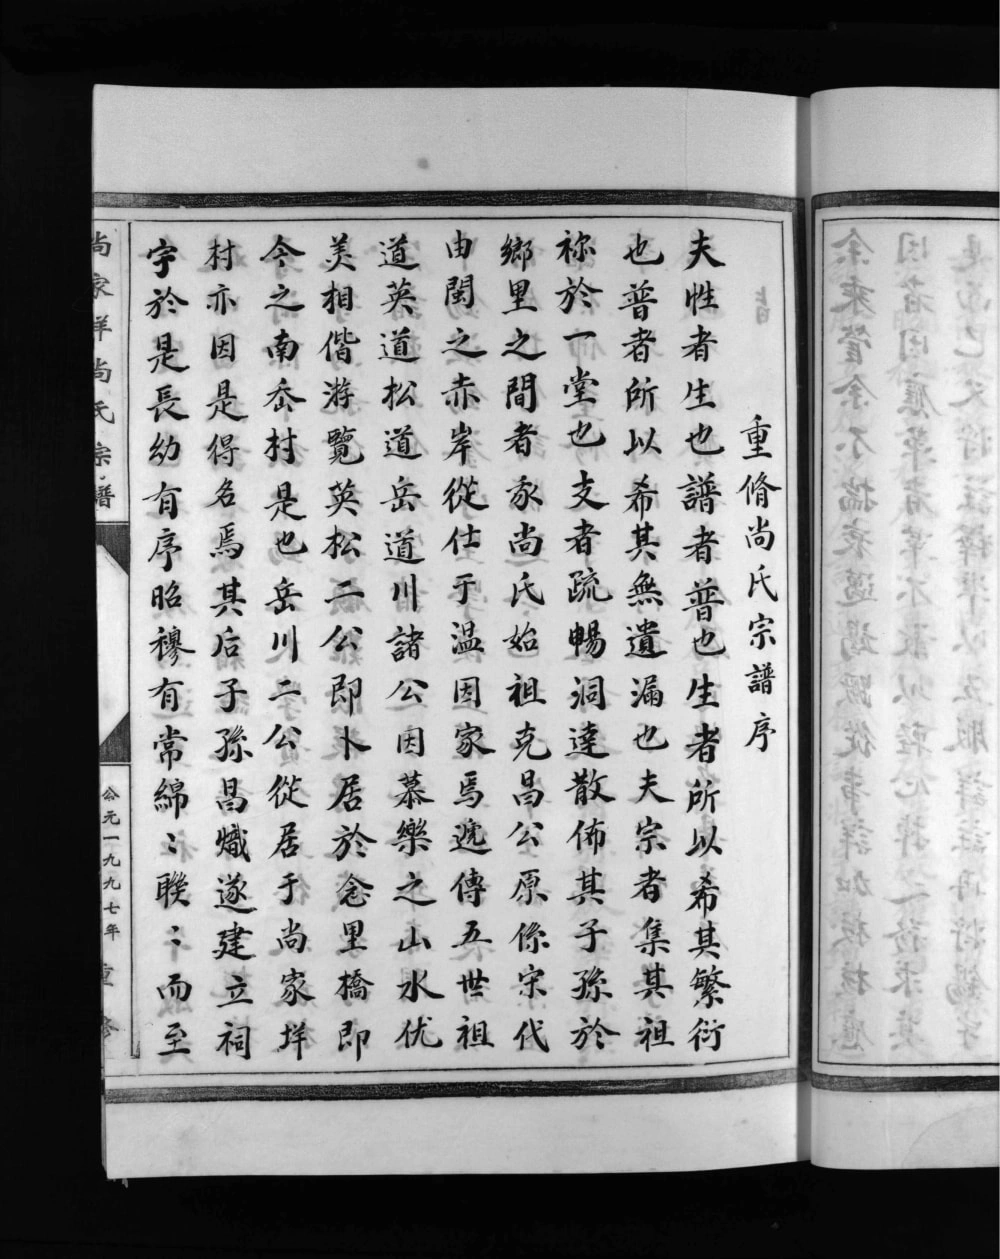 重脩尚氏宗譜序
夫性者生也譜者普也生者所以希其繁衍
也普者所以希其無遺漏也夫宗者集其祖
祢於一堂也支者疏暢洞達散佈其子孫於
鄉里之間者永尚氏始祖克昌公原係宋代
由閩之赤岸從仕于温因家焉遞傳五世祖
道英道松道岳道川諸公因慕樂之山水优
美相偕游覽英松二公即卜居於念里橋即
今之南岙村是也岳川二公從居于尚家垟
村亦因是得名焉其后子孫昌熾遂建立祠
宇於是長幼有序昭穆有常綿〻聯〻而至
尚家垟尚氏宗譜
公元一九九七年 重修